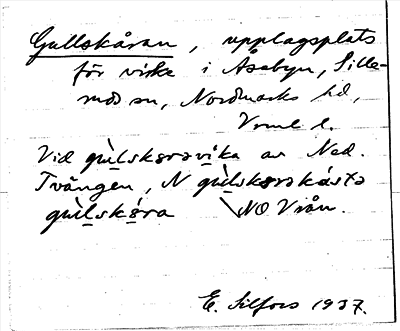 Gullskåran, upplagsplats
för virke i Åsebyn, Sille-
rud sn, Nordmarks hd,
Vrml l.
Vid gùlskɵrəvìka av Ned.
Tvången, N gùlskɵrəkástə
gùlskɵ́ra NO Viån.
E. Silfors 1937.